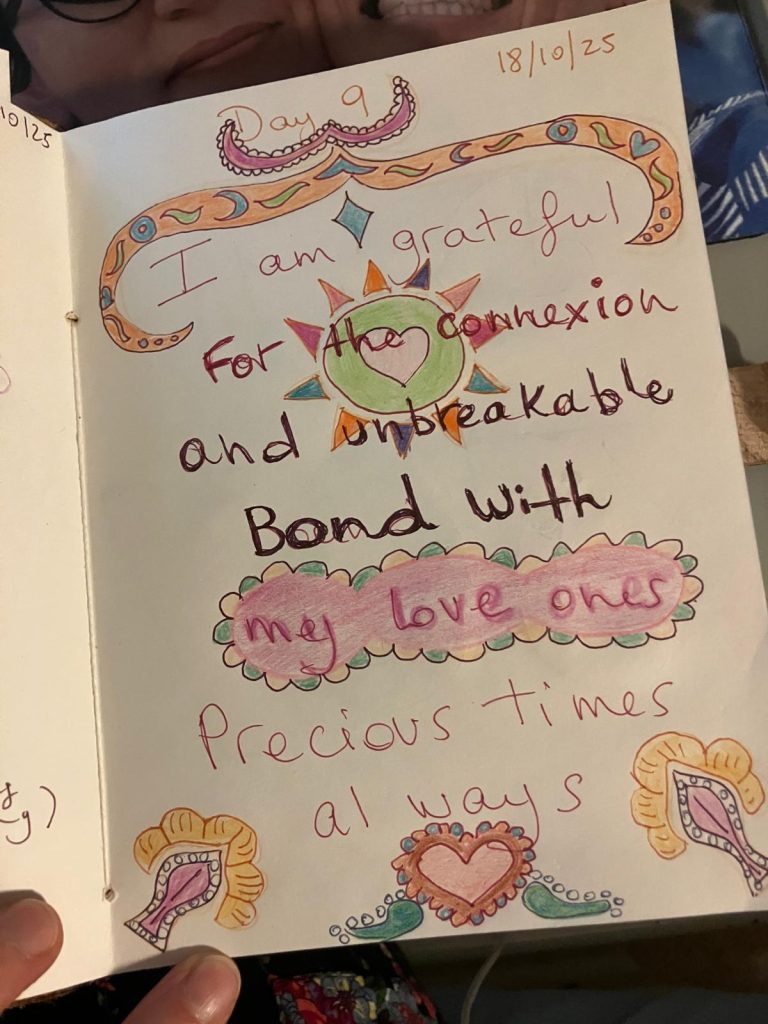 10/25
18/10/25
Day 9
I am grateful
For the connexion
and unbreakable
Bond with
my love ones
Precious times
always